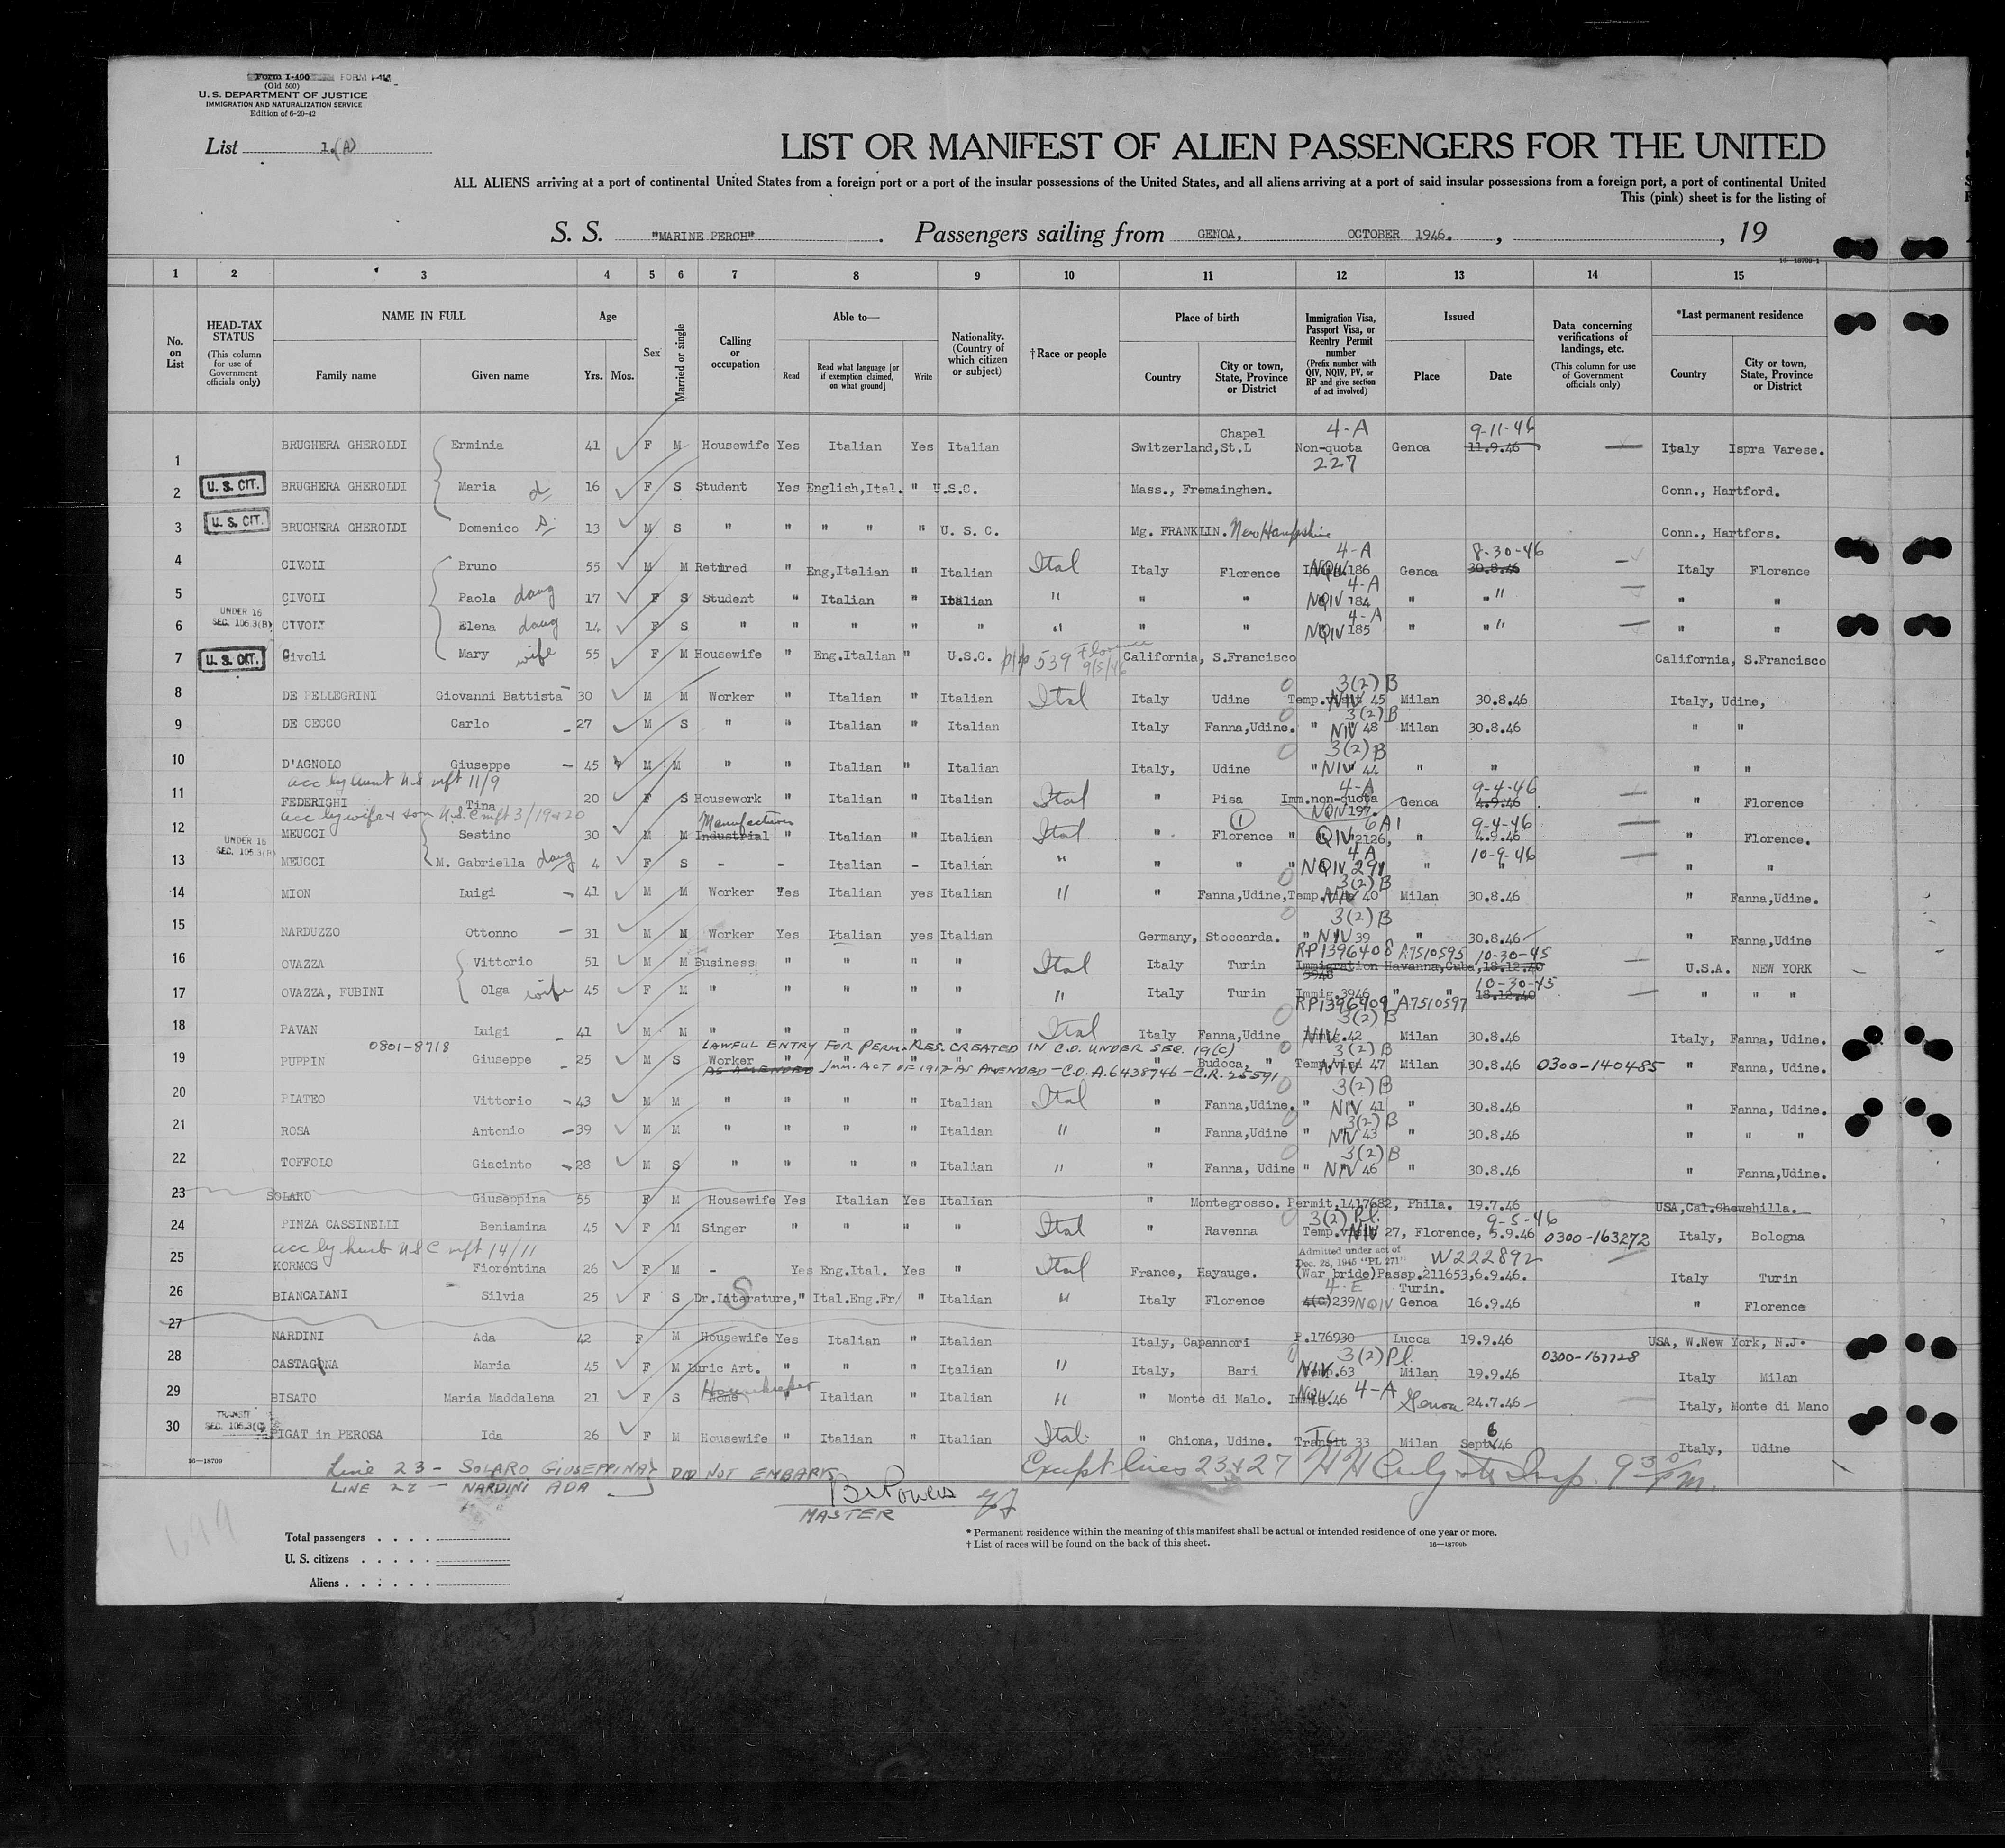 Form I-400 FORM I-418
(Old 500)
U. S. DEPARTMENT OF JUSTICE
IMMIGRATION AND NATURALIZATION SERVICE
Edition of 6-20-42
List 1.(A)
LIST OR MANIFEST OF ALIEN PASSENGERS FOR THE UNITED
ALL ALIENS arriving at a port of continental United States from a foreign port or a port of the insular possessions of the United States, and all aliens arriving at a port of said insular possessions from a foreign port, a port of continental United
This (pink) sheet is for the listing of
S. S. "MARINE PERCH". Passengers sailing from GENOA, OCTOBER 1946. , , 19
16—18709-1
1 2 3 4 5 6 7 8 9 10 11 12 13 14 15
No. on List
HEAD-TAX STATUS (This column for use of Government officials only)
NAME IN FULL Family name Given name
Age Yrs. Mos.
Sex
Married or single
Calling or occupation
Able to— Read Read what language [or if exemption claimed, on what ground] Write
Nationality. (Country of which citizen or subject)
†Race or people
Place of birth Country City or town, State, Province or District
Immigration Visa, Passport Visa, or Reentry Permit number (Prefix number with QIV, NQIV, PV, or RP and give section of act involved)
Issued Place Date
Data concerning verifications of landings, etc. (This column for use of Government officials only)
*Last permanent residence Country City or town, State, Province or District
1 BRUGHERA GHEROLDI Erminia 41 F M Housewife Yes Italian Yes Italian Switzerland,St.L Chapel 4-A Non-quota 227 Genoa 9-11-46 11.9.46 — Italy Ispra Varese.
2 U. S. CIT. BRUGHERA GHEROLDI Maria d 16 F S Student Yes English,Ital. " U.S.C. Mass., Fremainghen. Conn., Hartford.
3 U. S. CIT. BRUGHERA GHEROLDI Domenico s. 13 M S " " " " " U. S. C. Mg. FRANKLIN. New Hampshire Conn., Hartfors.
4 CIVOLI Bruno 55 M M Retired " Eng,Italian " Italian Ital Italy Florence 4-A NQIV 186 Genoa 8-30-46 30.8.46 — Italy Florence
5 CIVOLI Paola daug 17 F S Student " Italian " Italian " " " 4-A NQIV 184 " " " — " "
6 UNDER 16 SEC. 105.3(B) CIVOLI Elena daug 14 F S " " " " " " " " 4-A NQIV 185 " " " — " "
7 U. S. CIT. Civoli Mary wife 55 F M Housewife " Eng.Italian " U.S.C. p/p 539 Florence 9/5/46 California, S.Francisco California, S.Francisco
8 DE PELLEGRINI Giovanni Battista 30 M M Worker " Italian " Italian Ital Italy Udine 3(2)B NIV 45 Milan 30.8.46 Italy, Udine,
9 DE CECCO Carlo 27 M S " " Italian " Italian Italy Fanna,Udine. 3(2)B " NIV 48 Milan 30.8.46 " "
10 D'AGNOLO Giuseppe 45 M M " " Italian " Italian Italy, Udine 3(2)B " NIV 44 " " " "
acc by aunt U S mft 11/9
11 FEDERIGHI Tina 20 F S Housework " Italian " Italian Ital " Pisa 4-A Imm.non-quota NQIV 197. Genoa 9-4-46 4.9.46 — " Florence
acc by wife & son U.S.C mft 3/19 & 20
12 MEUCCI Sestino 30 M M Manufacturer Industrial " Italian " Italian Ital " Florence 1 6A1 " QIV 2126, " 9-4-46 4.9.46 — " Florence.
13 UNDER 16 SEC. 105.3(B) MEUCCI M. Gabriella daug 4 F S - - Italian - Italian " " " 4-A " NQIV 291 " 10-9-46 " — " "
14 MION Luigi 41 M M Worker Yes Italian yes Italian " " Fanna,Udine, 3(2)B 40 Milan 30.8.46 " Fanna,Udine.
15 NARDUZZO Ottonno 31 M M Worker Yes Italian yes Italian Germany, Stoccarda. 3(2)B " NIV 39 " 30.8.46 " Fanna,Udine
16 OVAZZA Vittorio 51 M M Business " " " " Ital Italy Turin RP1396408 A7510595 10-30-45 Immigration Havanna,Cuba,18.12.40 — U.S.A. NEW YORK
17 OVAZZA, FUBINI Olga wife 45 F M " " " " " " Italy Turin Immig.3946 " " 10-30-45 18.12.40 RP1396409 A7510597 — " " "
18 PAVAN Luigi 41 M M " " " " " Ital Italy Fanna,Udine 3(2)B NIV 42 Milan 30.8.46 Italy, Fanna, Udine.
0801-8718 LAWFUL ENTRY FOR PERM. RES. CREATED IN C.O. UNDER SEC. 19(C)
19 PUPPIN Giuseppe 25 M S Worker " " " " " Budoca, " 3(2)B NIV 47 Milan 30.8.46 0300-140485 " Fanna, Udine.
AS AMENDED Imm. ACT OF 1917 AS AMENDED — C.O. A.6438746 — C.R. 25591
20 PIATEO Vittorio 43 M M " " " " Italian Ital " Fanna,Udine. 3(2)B " NIV 41 " 30.8.46 " Fanna, Udine.
21 ROSA Antonio 39 M M " " " " Italian " " Fanna,Udine 3(2)B " NIV 43 " 30.8.46 " " "
22 TOFFOLO Giacinto 28 M S " " " " Italian " " Fanna, Udine 3(2)B " NIV 46 " 30.8.46 " Fanna,Udine.
23 SOLARO Giuseppina 55 F M Housewife Yes Italian Yes Italian " Montegrosso. Permit,1417682, Phila. 19.7.46 USA,Cal.Chowchilla.
24 PINZA CASSINELLI Beniamina 45 F M Singer " " " " Ital " Ravenna 3(2) Pl. NIV 27, Florence, 9-5-46 5.9.46 0300-163272 Italy, Bologna
acc by husb U S C mft 14/11
25 KORMOS Fiorentina 26 F M - Yes Eng.Ital. Yes " Ital France, Hayauge. Admitted under act of Dec. 28, 1945 "PL 271" W222892 (War bride)Passp.211653,6.9.46. Turin. Italy Turin
26 BIANCAIANI Silvia 25 F S Dr.Literature," Ital.Eng.Fr/ " Italian " Italy Florence 4-E 4(C)239 NQIV Genoa 16.9.46 " Florence
27 NARDINI Ada 42 F M Housewife Yes Italian " Italian Italy, Capannori P.176930 Lucca 19.9.46 USA, W.New York, N.J.
28 CASTAGNA Maria 45 F M Liric Art. " " " Italian " Italy, Bari 3(2)Pl. NIV 63 Milan 19.9.46 0300-167728 Italy Milan
29 BISATO Maria Maddalena 21 F S Housekeeper None " Italian " Italian " " Monte di Malo. NQIV 4-A 46 Genoa 24.7.46 Italy, Monte di Mano
30 TRANSIT SEC. 105.3(C) PIGAT in PEROSA Ida 26 F M Housewife " Italian " Italian Ital. " Chiona, Udine. Transit 33 Milan Sept 6 46 Italy, Udine
16—18709
Line 23 - SOLARO GIUSEPPINA } DID NOT EMBARK
LINE 27 - NARDINI ADA
Except lines 23 & 27 9 30 P.M.
MASTER
Total passengers
U. S. citizens
Aliens
* Permanent residence within the meaning of this manifest shall be actual or intended residence of one year or more.
† List of races will be found on the back of this sheet. 16—18709b